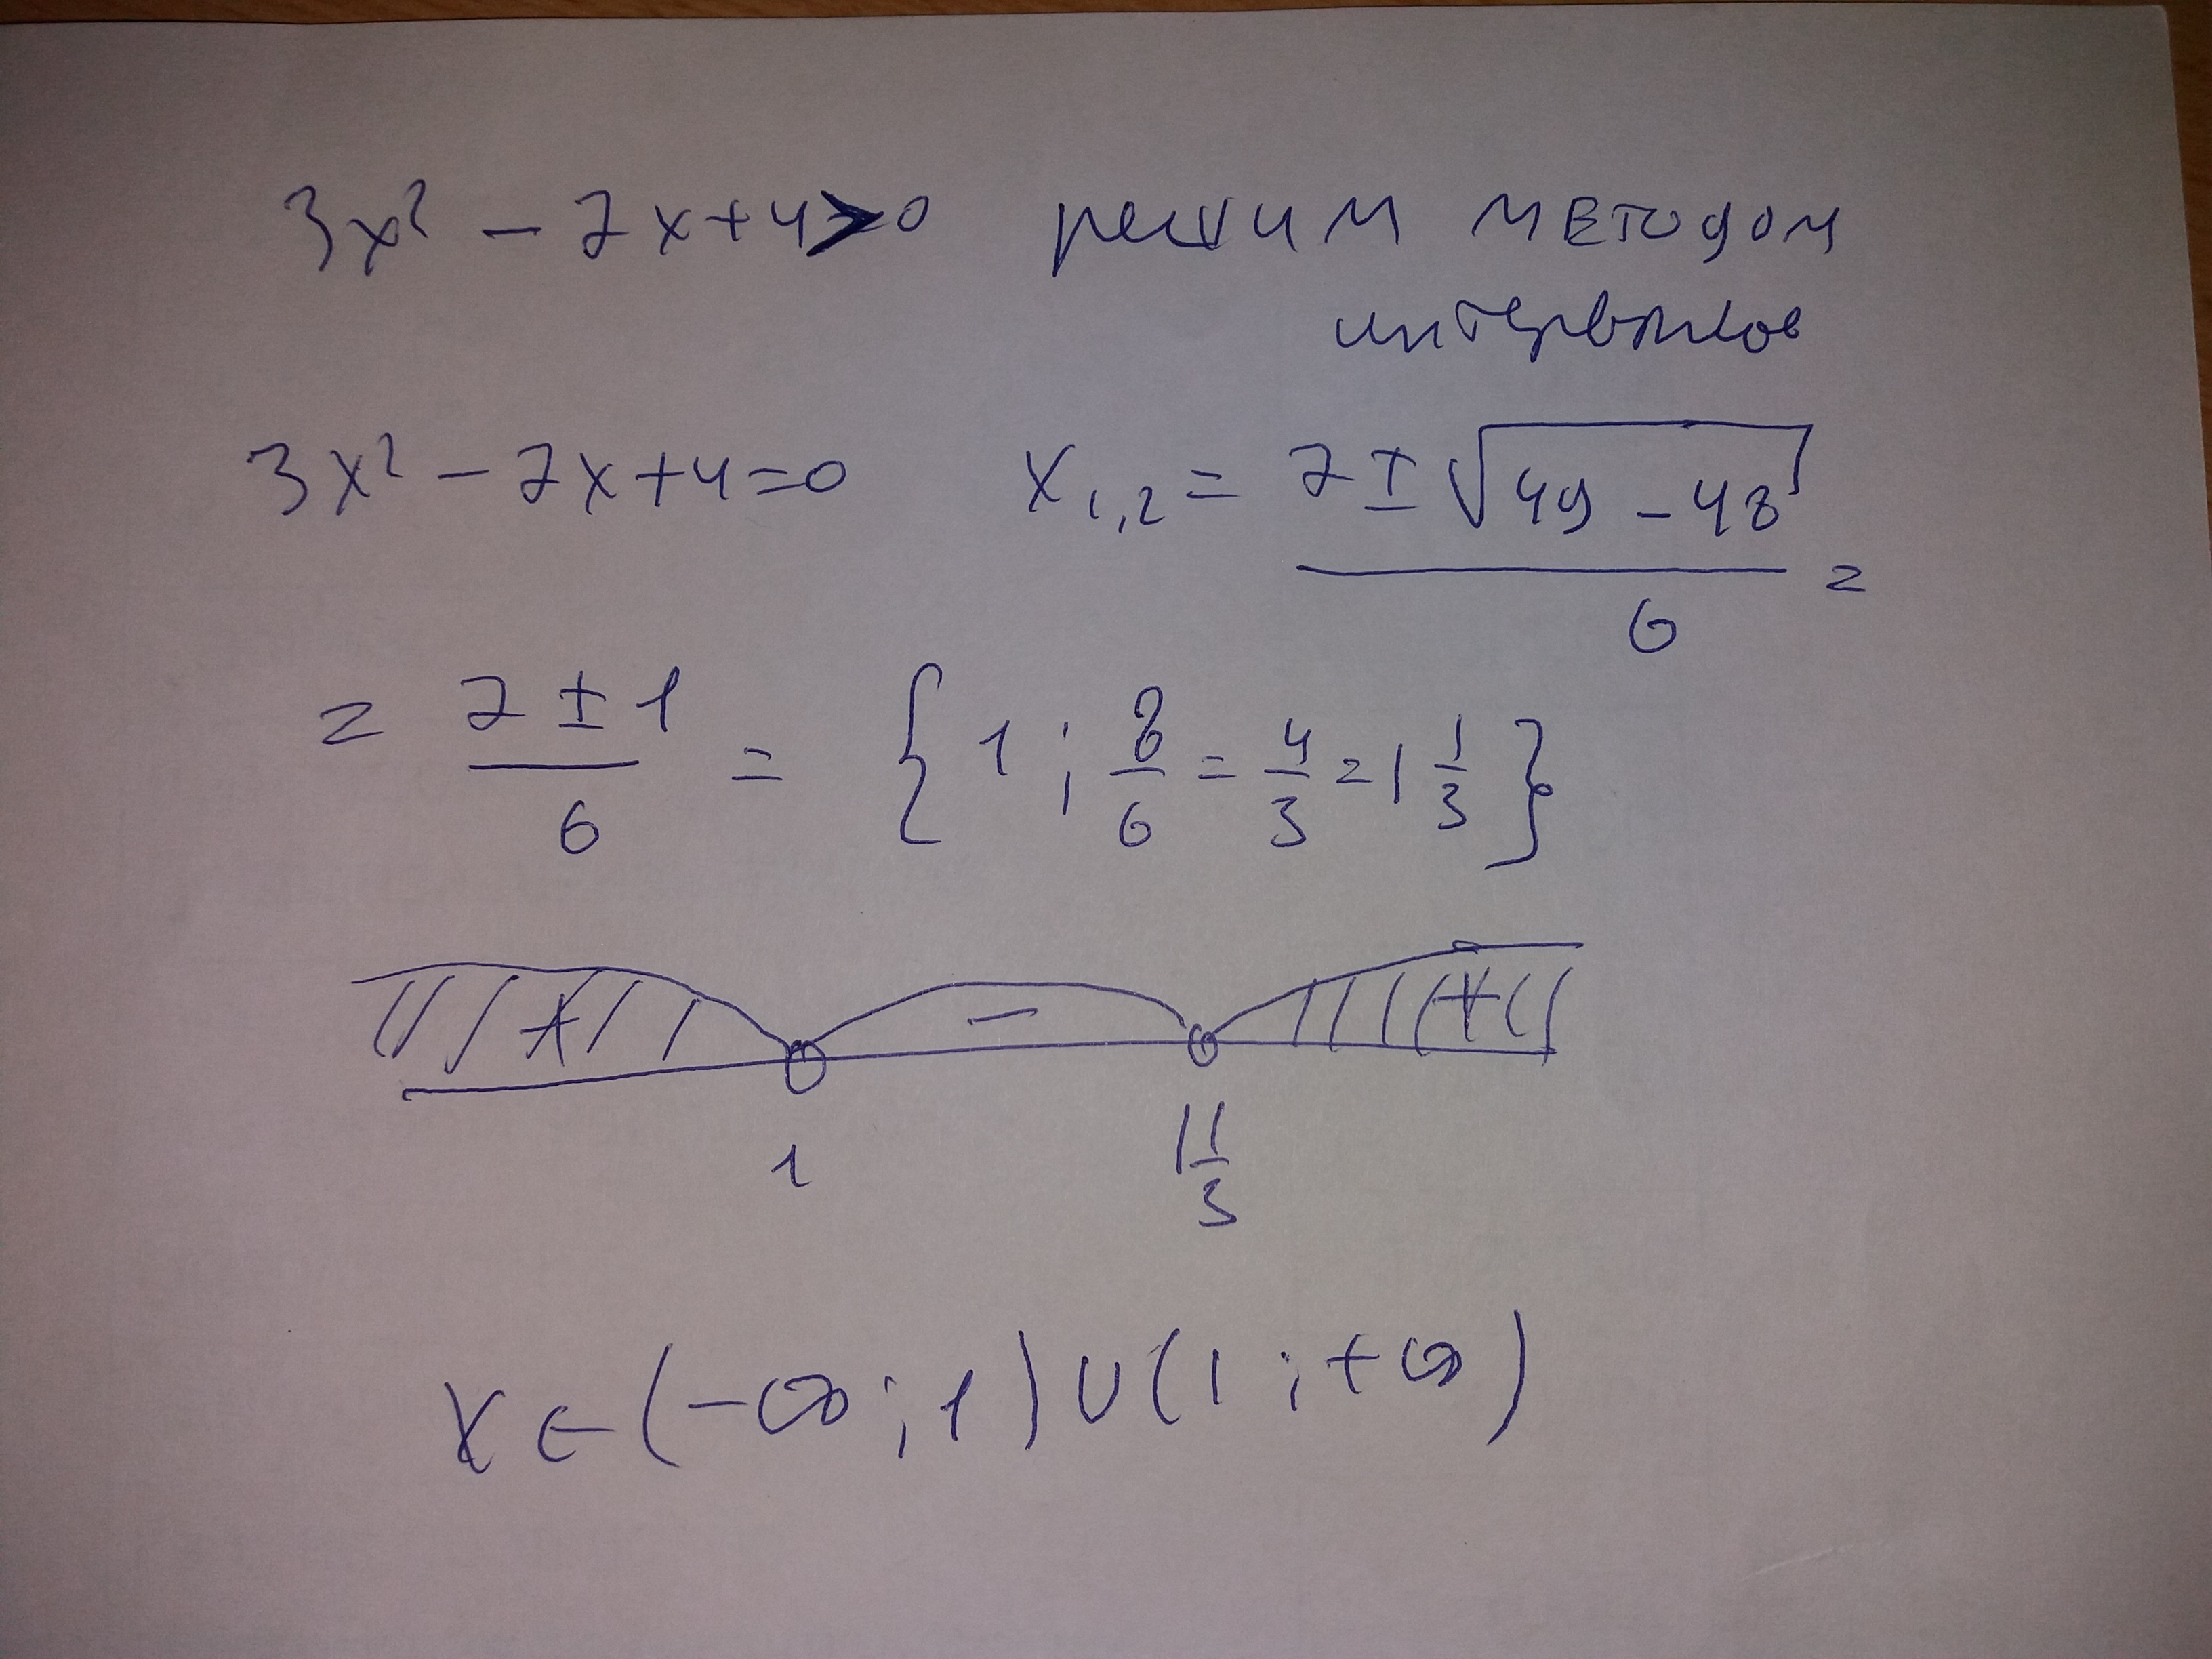 3x² - 7x+4>0 решим методом
интервалов
3x² - 7x+4=0 x₁,₂ = (7 ± √(49 - 48)) / 6 =
= (7 ± 1) / 6 = { 1 ; 8/6 = 4/3 = 1 1/3 }
+ - +
1 1 1/3
x ∈ (-∞ ; 1) ∪ (1 ; +∞)